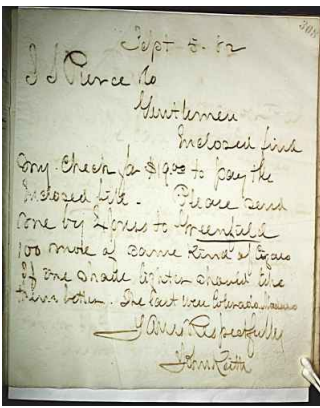 308
Sept 5. 82
S S Pierce Co
Gentlemen
Inclosed find
my Check for $19.00 to pay the
Inclosed bill. Please send
me by Express to Greenfield
100 more of same Kind of Cigars
If one shade lighter should like
them better. The last were Colorado Maduro
Yours Respectfully
John Keith